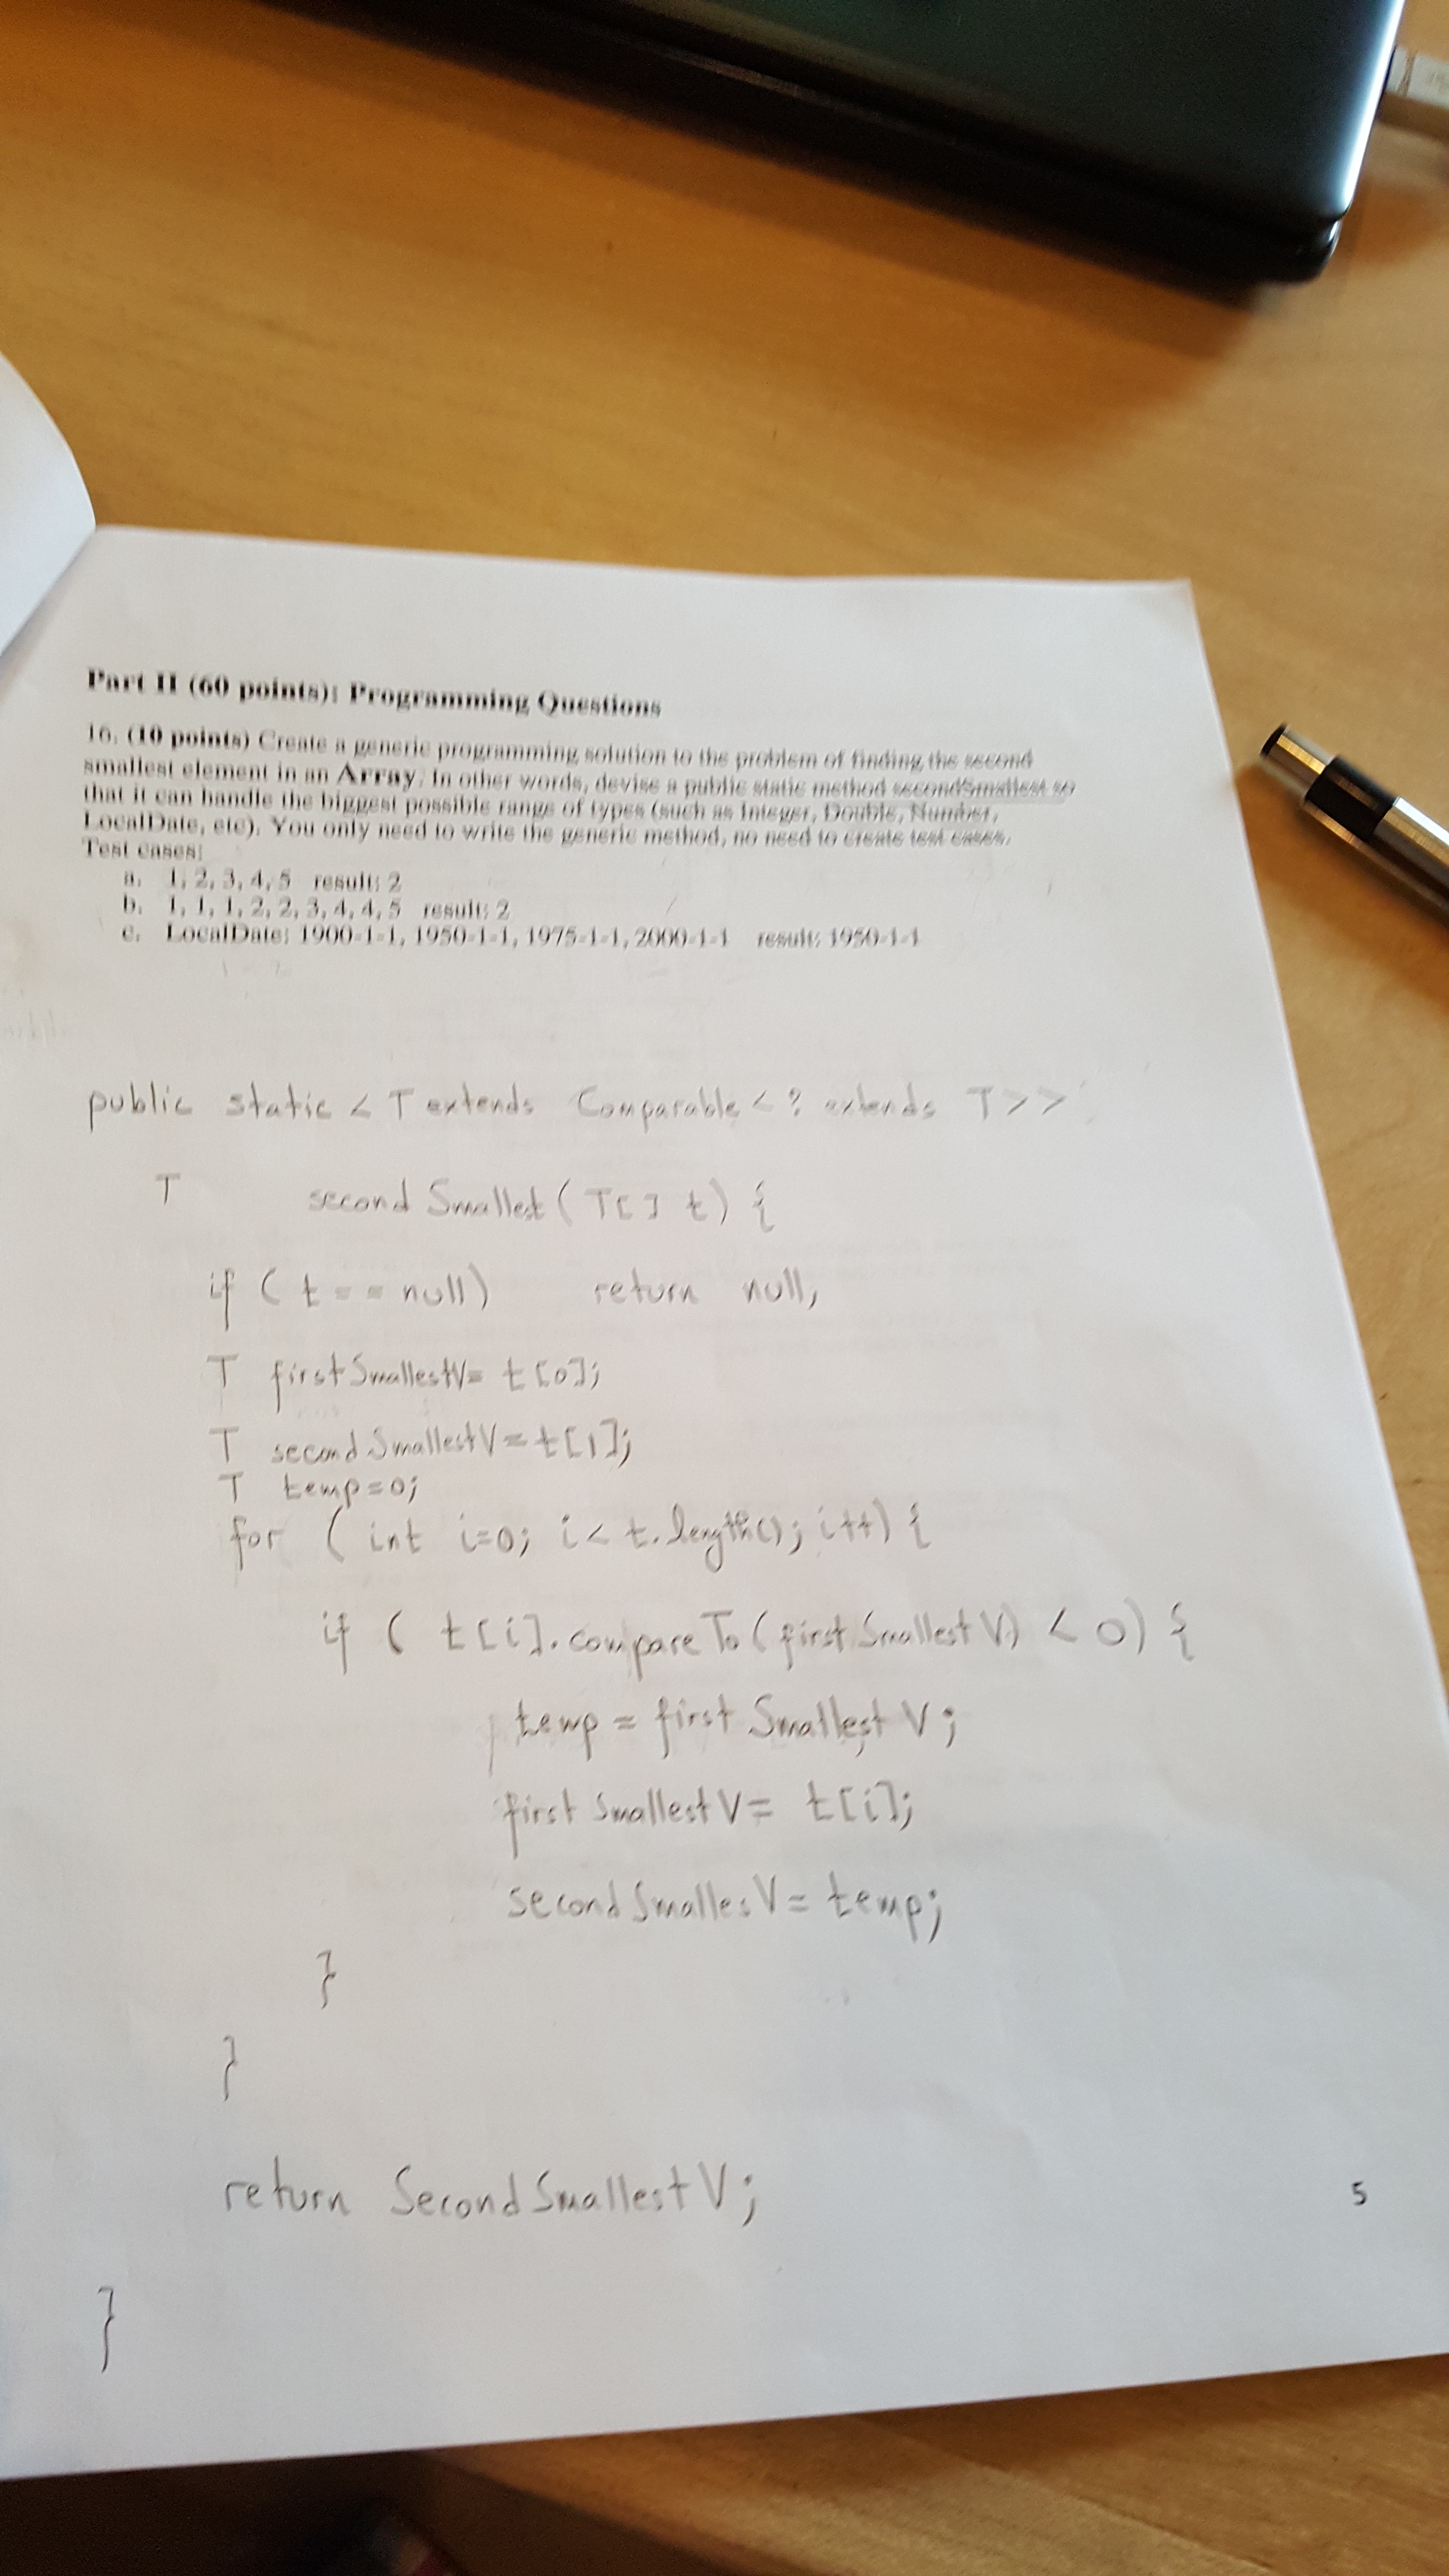 Part II (60 points): Programming Questions
16. (10 points) Create a generic programming solution to the problem of finding the second
smallest element in an Array. In other words, devise a public static method secondSmallest so
that it can handle the biggest possible range of types (such as Integer, Double, Number,
LocalDate, etc). You only need to write the generic method, no need to create test cases.
Test cases:
a. 1, 2, 3, 4, 5 result: 2
b. 1, 1, 1, 2, 2, 3, 4, 4, 5 result: 2
c. LocalDate: 1900-1-1, 1950-1-1, 1975-1-1, 2000-1-1 result: 1950-1-1
public static < T extends Comparable < ? extends T>>
T second Smallest ( T[] t) {
if ( t == null) return null,
T firstSmallestV= t[0];
T second SmallestV = t[1];
T temp=0;
for ( int i=0; i< t.length(); i++) {
if ( t[i].compareTo (first Smallest V) < 0) {
temp = first Smallest V;
first SmallestV= t[i];
second SmallesV= temp;
}
}
return Second Smallest V;
5
}